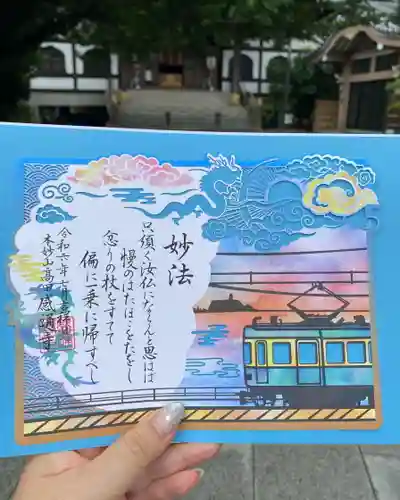 妙法
只須く汝仏にならんと思はば
慢のはたほこをたをし
忿りの杖をすてて
偏に一乗に帰すべし
令和六年
本妙山高田感通寺